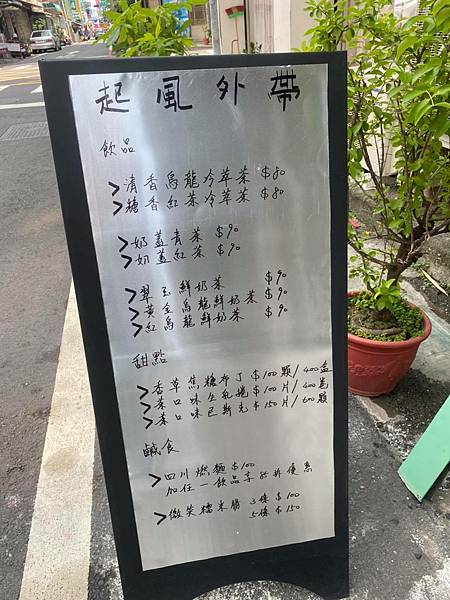 起風外帶
飲品
>清香烏龍冷萃茶 $80
>糖香紅茶冷萃茶 $80
>奶蓋青茶 $90
>奶蓋紅茶 $90
>翠玉鮮奶茶 $90
>黃金烏龍鮮奶茶 $90
>紅烏龍鮮奶茶 $90
甜點
>香草焦糖布丁 $100顆/400盒
>茶口味生乳捲 $100片/400卷
>茶口味巴斯克 $150片/600顆
鹹食
>四川燃麵 $100
加任一飲品享折併優惠
>微笑糯米腸 3條 $100
5條 $150